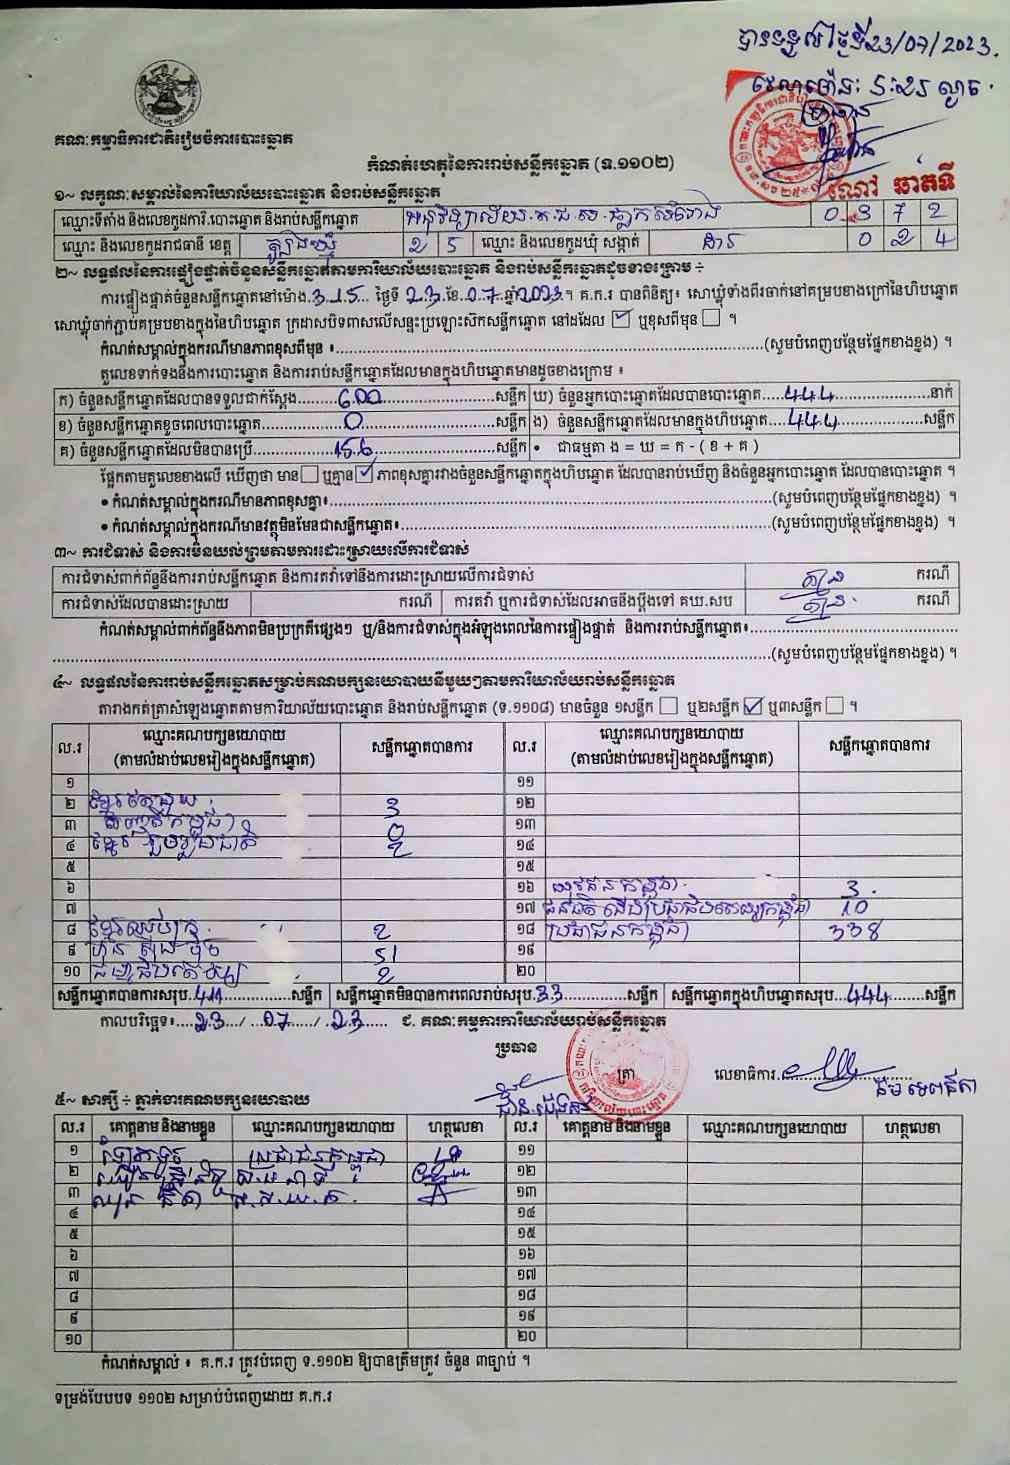 បានទទួលថ្ងៃទី23/07/2023.
គណៈកម្មាធិការជាតិរៀបចំការបោះឆ្នោត
កំណត់ហេតុនៃការរាប់សន្លឹកឆ្នោត (ទ.១១០២)
ណៅ ឆាតទី
១~ លក្ខណៈសម្គាល់នៃការិយាល័យបោះឆ្នោត និងរាប់សន្លឹកឆ្នោត
ឈ្មោះទីតាំង និងលេខកូដការិ.បោះឆ្នោត និងរាប់សន្លឹកឆ្នោត 0 3 7 2
ឈ្មោះ និងលេខកូដរាជធានី ខេត្ត ត្បូងឃ្មុំ 2 5 ឈ្មោះ និងលេខកូដឃុំ សង្កាត់ ដារ 0 2 4
២~ លទ្ធផលនៃការផ្ទៀងផ្ទាត់ចំនួនសន្លឹកឆ្នោតតាមការិយាល័យបោះឆ្នោត និងរាប់សន្លឹកឆ្នោតដូចខាងក្រោម ÷
ការផ្ទៀងផ្ទាត់ចំនួនសន្លឹកឆ្នោតនៅម៉ោង.3:15... ថ្ងៃទី 23.ខែ.07.ឆ្នាំ2023.។ គ.ក.រ បានពិនិត្យ៖ សោឃ្លុំទាំងពីរចាក់នៅគម្របខាងក្រៅនៃហិបឆ្នោត
សោឃ្លុំចាក់ភ្ជាប់គម្របខាងក្នុងនៃហិបឆ្នោត ក្រដាសបិទពាសលើសន្ទះប្រឡោះសិកសន្លឹកឆ្នោត នៅដដែល ☑ ឬខុសពីមុន ☐ ។
កំណត់សម្គាល់ក្នុងករណីមានភាពខុសពីមុន ៖..........(សូមបំពេញបន្ថែមផ្នែកខាងខ្នង) ។
តួលេខទាក់ទងនឹងការបោះឆ្នោត និងការរាប់សន្លឹកឆ្នោតដែលមានក្នុងហិបឆ្នោតមានដូចខាងក្រោម ៖
ក) ចំនួនសន្លឹកឆ្នោតដែលបានទទួលជាក់ស្តែង........600........សន្លឹក ឃ) ចំនួនអ្នកបោះឆ្នោតដែលបានបោះឆ្នោត....444........នាក់
ខ) ចំនួនសន្លឹកឆ្នោតខូចពេលបោះឆ្នោត........0........សន្លឹក ង) ចំនួនសន្លឹកឆ្នោតដែលមានក្នុងហិបឆ្នោត....444........សន្លឹក
គ) ចំនួនសន្លឹកឆ្នោតដែលមិនបានប្រើ........156........សន្លឹក • ជាធម្មតា ង = ឃ = ក - ( ខ + គ )
ផ្អែកតាមតួលេខខាងលើ ឃើញថា មាន ☐ ឬគ្មាន ☑ ភាពខុសគ្នារវាងចំនួនសន្លឹកឆ្នោតក្នុងហិបឆ្នោត ដែលបានរាប់ឃើញ និងចំនួនអ្នកបោះឆ្នោត ដែលបានបោះឆ្នោត ។
• កំណត់សម្គាល់ក្នុងករណីមានភាពខុសគ្នា៖..........(សូមបំពេញបន្ថែមផ្នែកខាងខ្នង) ។
• កំណត់សម្គាល់ក្នុងករណីមានវត្ថុមិនមែនជាសន្លឹកឆ្នោត៖..........(សូមបំពេញបន្ថែមផ្នែកខាងខ្នង) ។
៣~ ការជំទាស់ និងការមិនយល់ព្រមតាមការដោះស្រាយលើការជំទាស់
ការជំទាស់ពាក់ព័ន្ធនឹងការរាប់សន្លឹកឆ្នោត និងការតវ៉ាទៅនឹងការដោះស្រាយលើការជំទាស់ គ្មាន ករណី
ការជំទាស់ដែលបានដោះស្រាយ ករណី ការតវ៉ា ឬការជំទាស់ដែលអាចនឹងប្តឹងទៅ គឃ.សប គ្មាន. ករណី
កំណត់សម្គាល់ពាក់ព័ន្ធនឹងភាពមិនប្រក្រតីផ្សេងៗ ឬ/និងការជំទាស់ក្នុងអំឡុងពេលនៃការផ្ទៀងផ្ទាត់ និងការរាប់សន្លឹកឆ្នោត៖..........
..........(សូមបំពេញបន្ថែមផ្នែកខាងខ្នង) ។
៤~ លទ្ធផលនៃការរាប់សន្លឹកឆ្នោតសម្រាប់គណបក្សនយោបាយនីមួយៗតាមការិយាល័យរាប់សន្លឹកឆ្នោត
តារាងកត់ត្រាសំឡេងឆ្នោតតាមការិយាល័យបោះឆ្នោត និងរាប់សន្លឹកឆ្នោត (ទ.១១០៨) មានចំនួន ១សន្លឹក ☐ ឬ២សន្លឹក ☑ ឬ៣សន្លឹក ☐ ។
ល.រ ឈ្មោះគណបក្សនយោបាយ សន្លឹកឆ្នោតបានការ ល.រ ឈ្មោះគណបក្សនយោបាយ សន្លឹកឆ្នោតបានការ
(តាមលំដាប់លេខរៀងក្នុងសន្លឹកឆ្នោត) (តាមលំដាប់លេខរៀងក្នុងសន្លឹកឆ្នោត)
១ ១១
២ 3 ១២
៣ 0 ១៣
៤ ខ្មែររួបរួមជាតិ 2 ១៤
៥ ១៥
៦ ១៦ យុវជនកម្ពុជា. 3.
៧ ១៧ 10
៨ 2 ១៨ ប្រជាជនកម្ពុជា 338
៩ ហ៊្វុនស៊ិនប៉ិច 51 ១៩
១០ 2 ២០
សន្លឹកឆ្នោតបានការសរុប.411........សន្លឹក សន្លឹកឆ្នោតមិនបានការពេលរាប់សរុប.33........សន្លឹក សន្លឹកឆ្នោតក្នុងហិបឆ្នោតសរុប...444......សន្លឹក
កាលបរិច្ឆេទ៖....23.../...07..../..23...... ជ. គណៈកម្មការការិយាល័យរាប់សន្លឹកឆ្នោត
ប្រធាន
ត្រា លេខាធិការ..........
៥~ សាក្សី ÷ ភ្នាក់ងារគណបក្សនយោបាយ
ល.រ គោត្តនាម និងនាមខ្លួន ឈ្មោះគណបក្សនយោបាយ ហត្ថលេខា ល.រ គោត្តនាម និងនាមខ្លួន ឈ្មោះគណបក្សនយោបាយ ហត្ថលេខា
១ ប្រជាជនកម្ពុជា ១១
២ ១២
៣ ១៣
៤ ១៤
៥ ១៥
៦ ១៦
៧ ១៧
៨ ១៨
៩ ១៩
១០ ២០
កំណត់សម្គាល់ ៖ គ.ក.រ ត្រូវបំពេញ ទ.១១០២ ឱ្យបានត្រឹមត្រូវ ចំនួន ៣ច្បាប់ ។
ទម្រង់បែបបទ ១១០២ សម្រាប់បំពេញដោយ គ.ក.រ